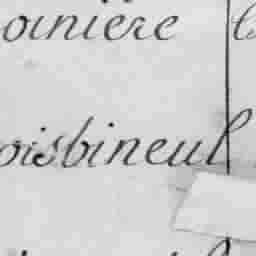 oiniere
oisbineul